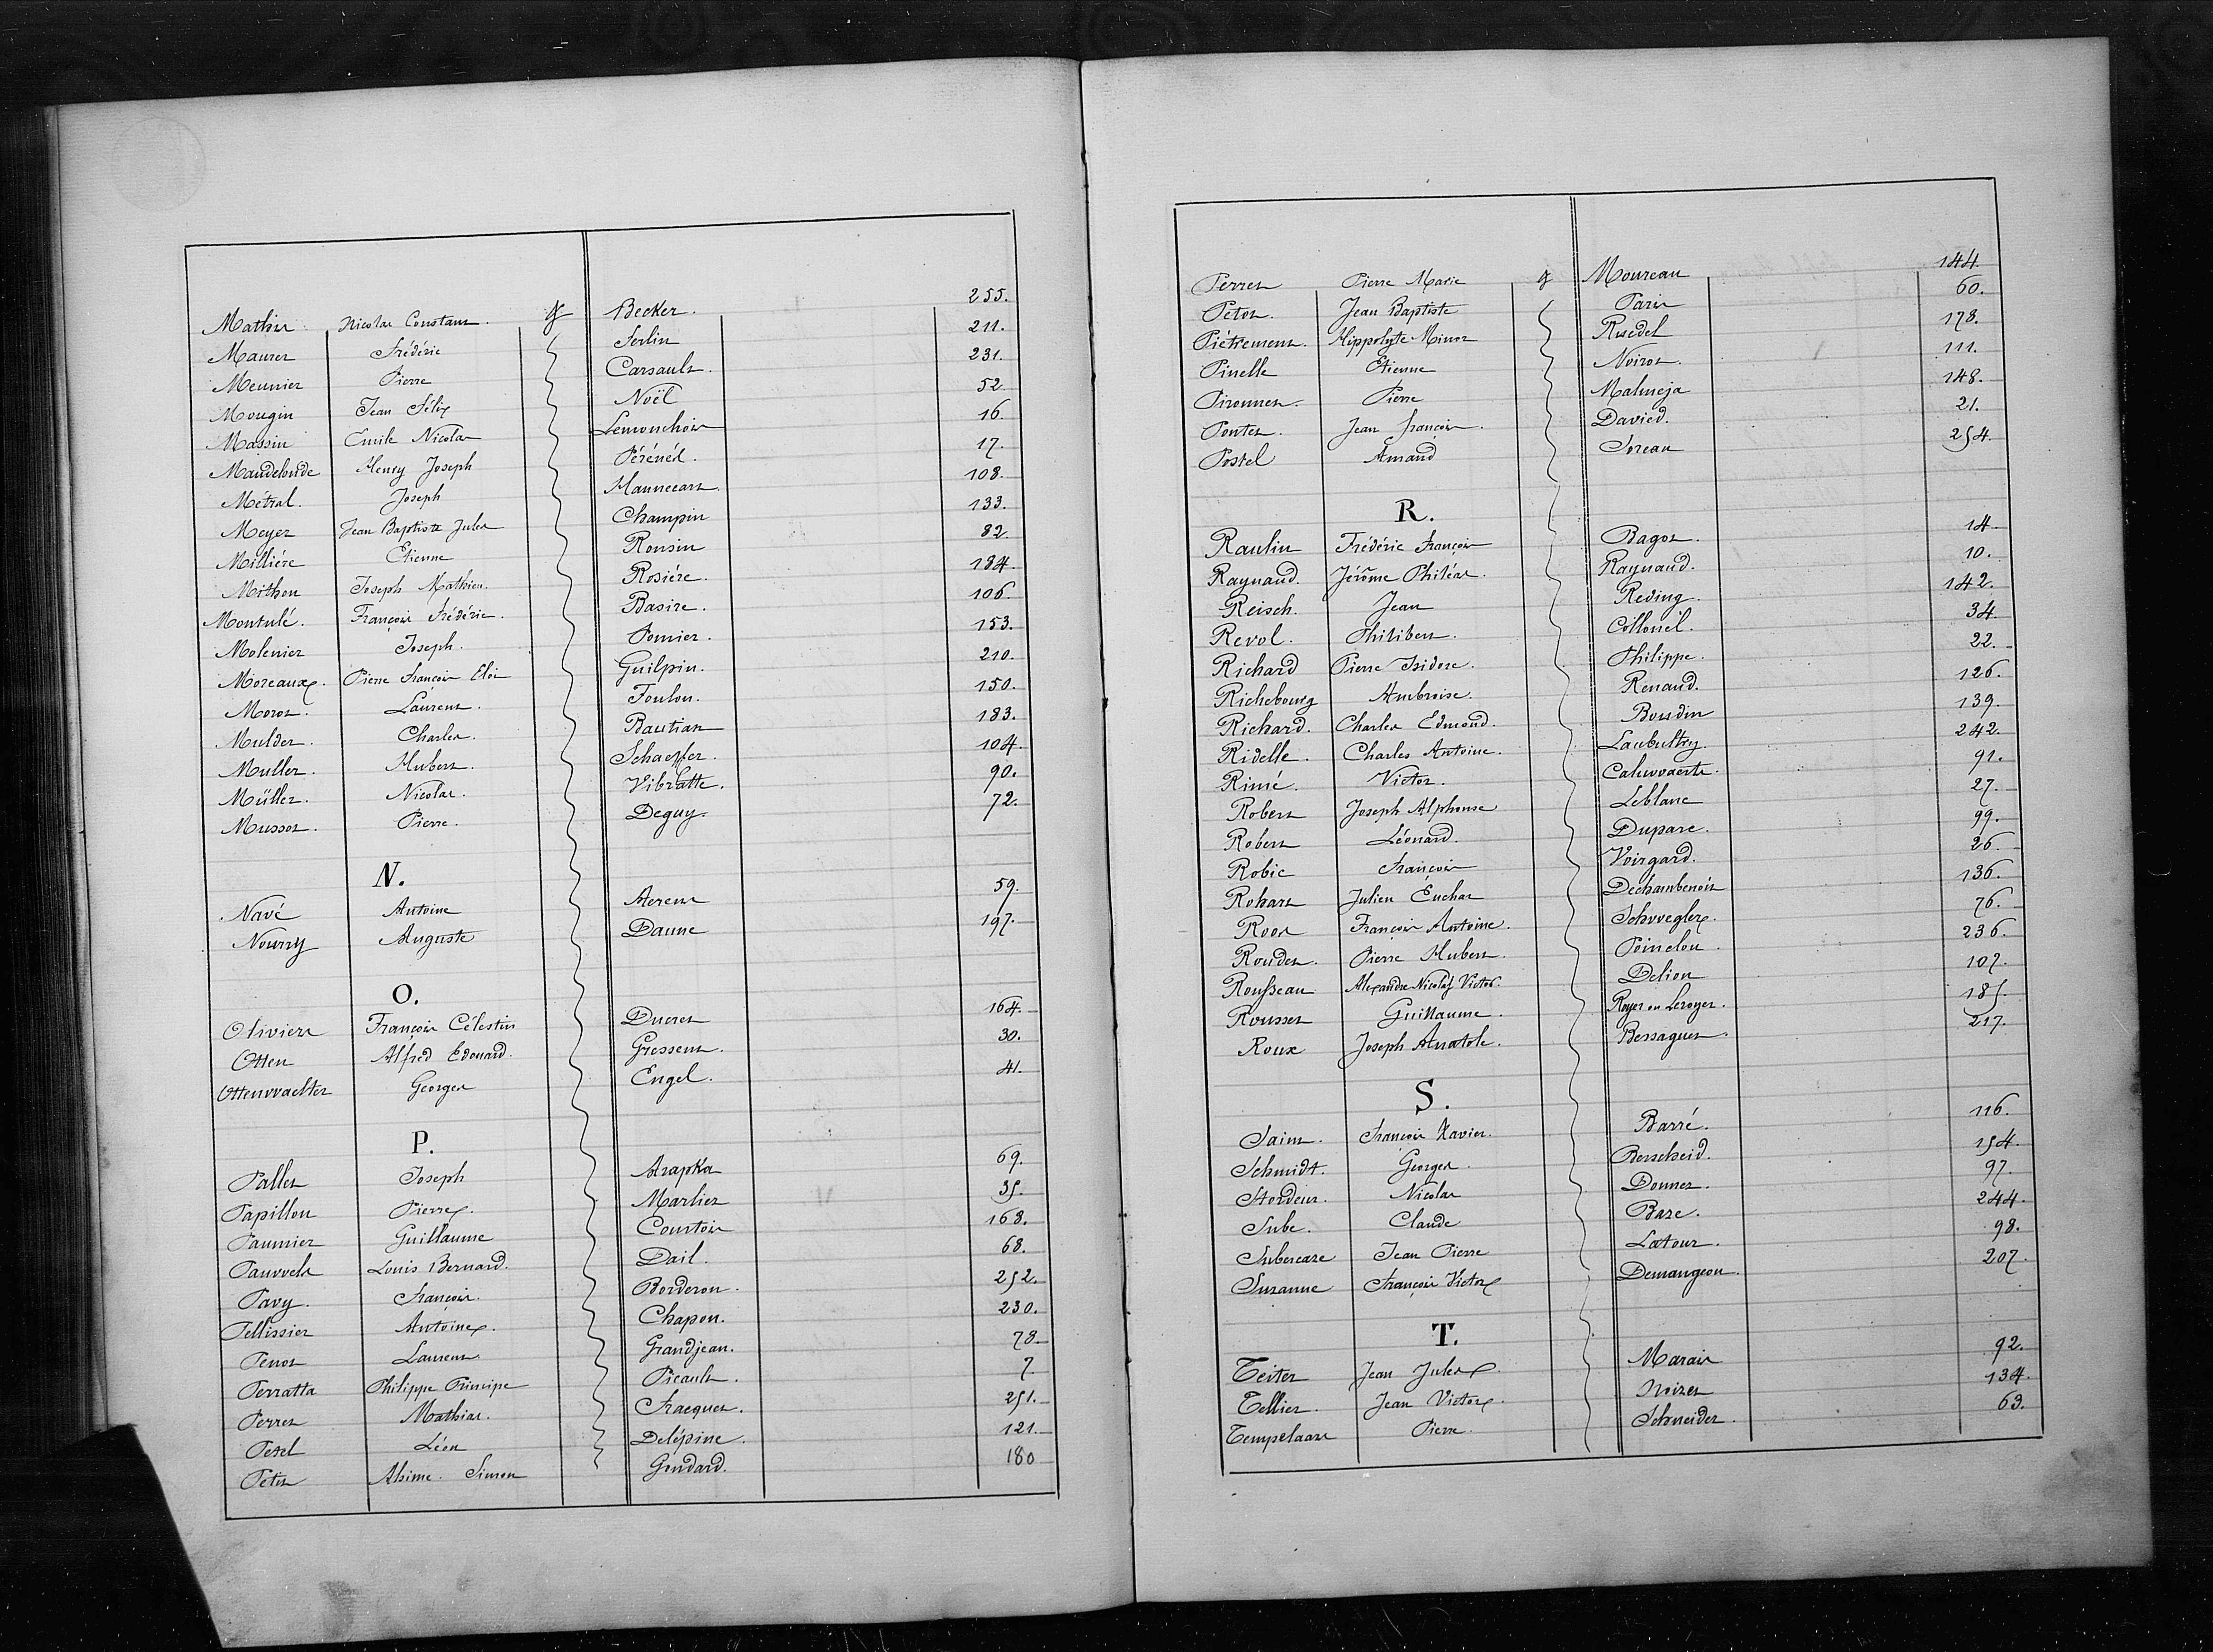 Mathis Nicolas Constant. & Becker. 255.
Maurer Frédéric Serlin 211.
Meunier Pierre Carsault. 231.
Mougin Jean Félix Noël 52.
Massin Emile Nicolas Lemonchois 16.
Maudelonde Henry Joseph Pérénéd. 17.
Métral. Joseph Hannecart. 108.
Meyer Jean Baptiste Jules Champin 133.
Millière Etienne Ronsin 82.
Mithon Joseph Mathieu. Rosière. 184.
Montulé. François Frédéric. Basire. 106.
Molenier Joseph. Pomier. 153.
Moreaux. Pierre François Eloi Guilpin. 210.
Morot. Laurent. Foulon. 150.
Mulder. Charles. Bautian 183.
Muller. Hubert. Schaeffer. 104.
Müller. Nicolas. Vibratte. 90.
Mussot. Pierre. Deguy. 72.
N.
Navé Antoine Aerens 59.
Nourry Auguste Daune 197.
O.
Olivier François Célestin Ducret 164.
Otten Alfred Edouard. Gressent. 30.
Ottenwaelter Georges Engel. 41.
P.
Pallet Joseph Arapka 69.
Papillon Pierre. Marlier 35.
Paumier Guillaume Courtois 168.
Pauwels Louis Bernard. Dail. 68.
Pavy. François. Borderon. 252.
Pellissier Antoine. Chapon. 230.
Penot Laurent Grandjean. 78.
Perratta Philippe Principe Picault. 7.
Perret Mathias. Fracquet. 251.
Petel Léon Delépine. 121.
Petit Alsime. Simon Gondard. 180
Perret Pierre Marie & Moureau 144.
Petot. Jean Baptiste Paris 60.
Piétrement. Hippolyte Minor Risedel 178.
Pinelle Etienne Noirot. 111.
Pironnet. Pierre Malmeja 148.
Pontet. Jean François. Davied. 21.
Postel Amand Soreau 254.
R.
Raulin Frédéric François Bagot. 14.
Raynaud. Jérôme Philéas. Raynaud. 10.
Reisch. Jean Reding. 142.
Revol. Philibert. Collonel. 34.
Richard Pierre Isidore. Philippe. 22.
Richebourg Ambroise. Renaud. 126.
Richard. Charles Edmond. Boudin 139.
Ridelle. Charles Antoine. Laubultry. 242.
Rimé. Victor. Caluwaerts. 91.
Robert Joseph Alphonse Leblanc 27.
Robert Léonard. Duparc. 99.
Robic François Voirgard. 26.
Rohart Julien Euchar Dechambenoit 136.
Roos François Antoine. Schwegler. 76.
Roudet. Pierre Hubert. Poinclou. 236.
Rousseau Alexandre Nicolas Victor. Delion 107.
Rousset Guillaume. Royer ou Leroyer. 185.
Roux Joseph Anatole. Bessaguet. 217.
S.
Saint. François Xavier. Barré. 116.
Schmidt. Georges. Berscheid. 154.
Stordeur. Nicolas Donner. 97.
Sube. Claude Baze. 244.
Subercaze Jean Pierre Latour. 98.
Suzanne François Victor Demangeon. 207.
T.
Teiter Jean Jules Marais 92.
Tellier. Jean Victor. Noizet 134.
Tempelaare Pierre. Schneider. 63.